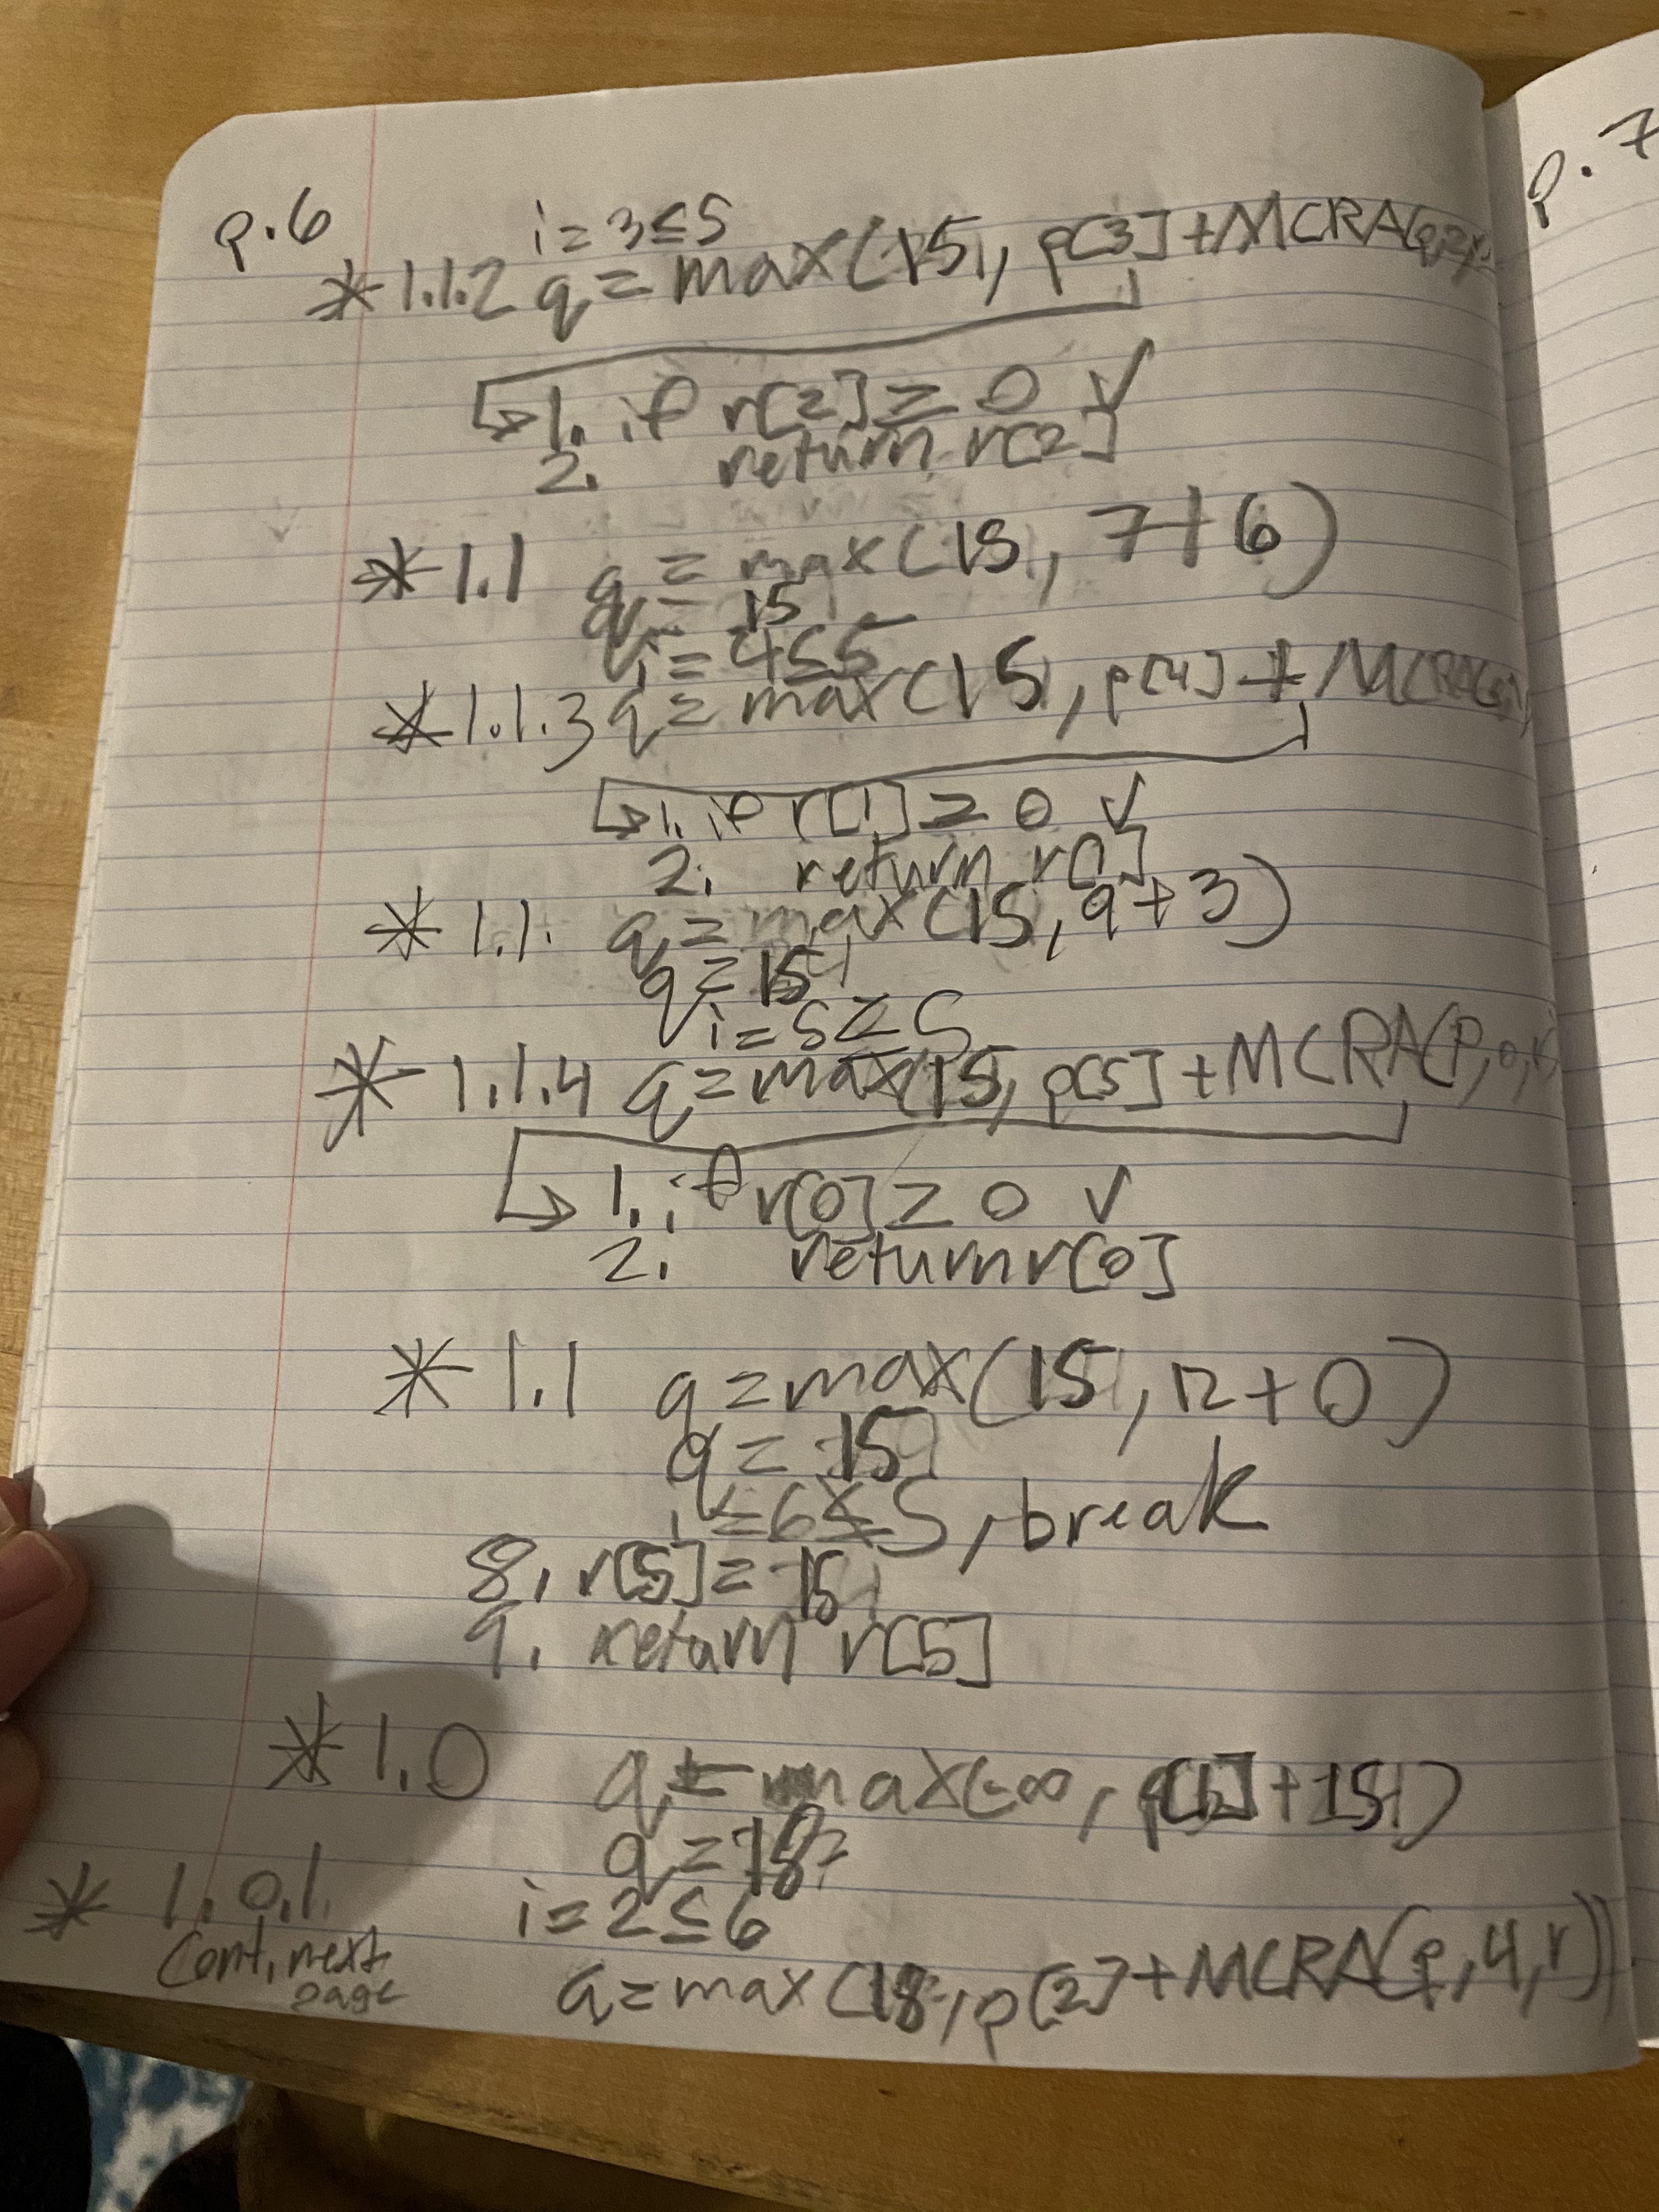 p.6
i=3≤5
* 1.1.2 q = max(15, p[3]+MCRA(p,2,r))
↳ 1. if r[2] ≥ 0 ✓
2. return r[2]
* 1.1 q = max(15, 7+6)
q = 15
i = 4≤5
* 1.1.3 q = max(15, p[4] + MCRA(
↳ 1. if r[1] ≥ 0 ✓
2. return r[1]
* 1.1. q = max(15, 9+3)
q = 15
i = 5≤5
* 1.1.4 q = max(15, p[5] + MCRA(P,0,r)
↳ 1. if r[0] ≥ 0 ✓
2. return r[0]
* 1.1 q = max(15, 12+0)
q = 15
i = 6≰5, break
8. r[5] = 15
9. return r[5]
* 1.0 q = max(-∞, p[1] + 15)
q = 18
* 1.0.1 i = 2≤6
Cont. next page
q = max(18, p[2] + MCRA(p,4,r))
p.7